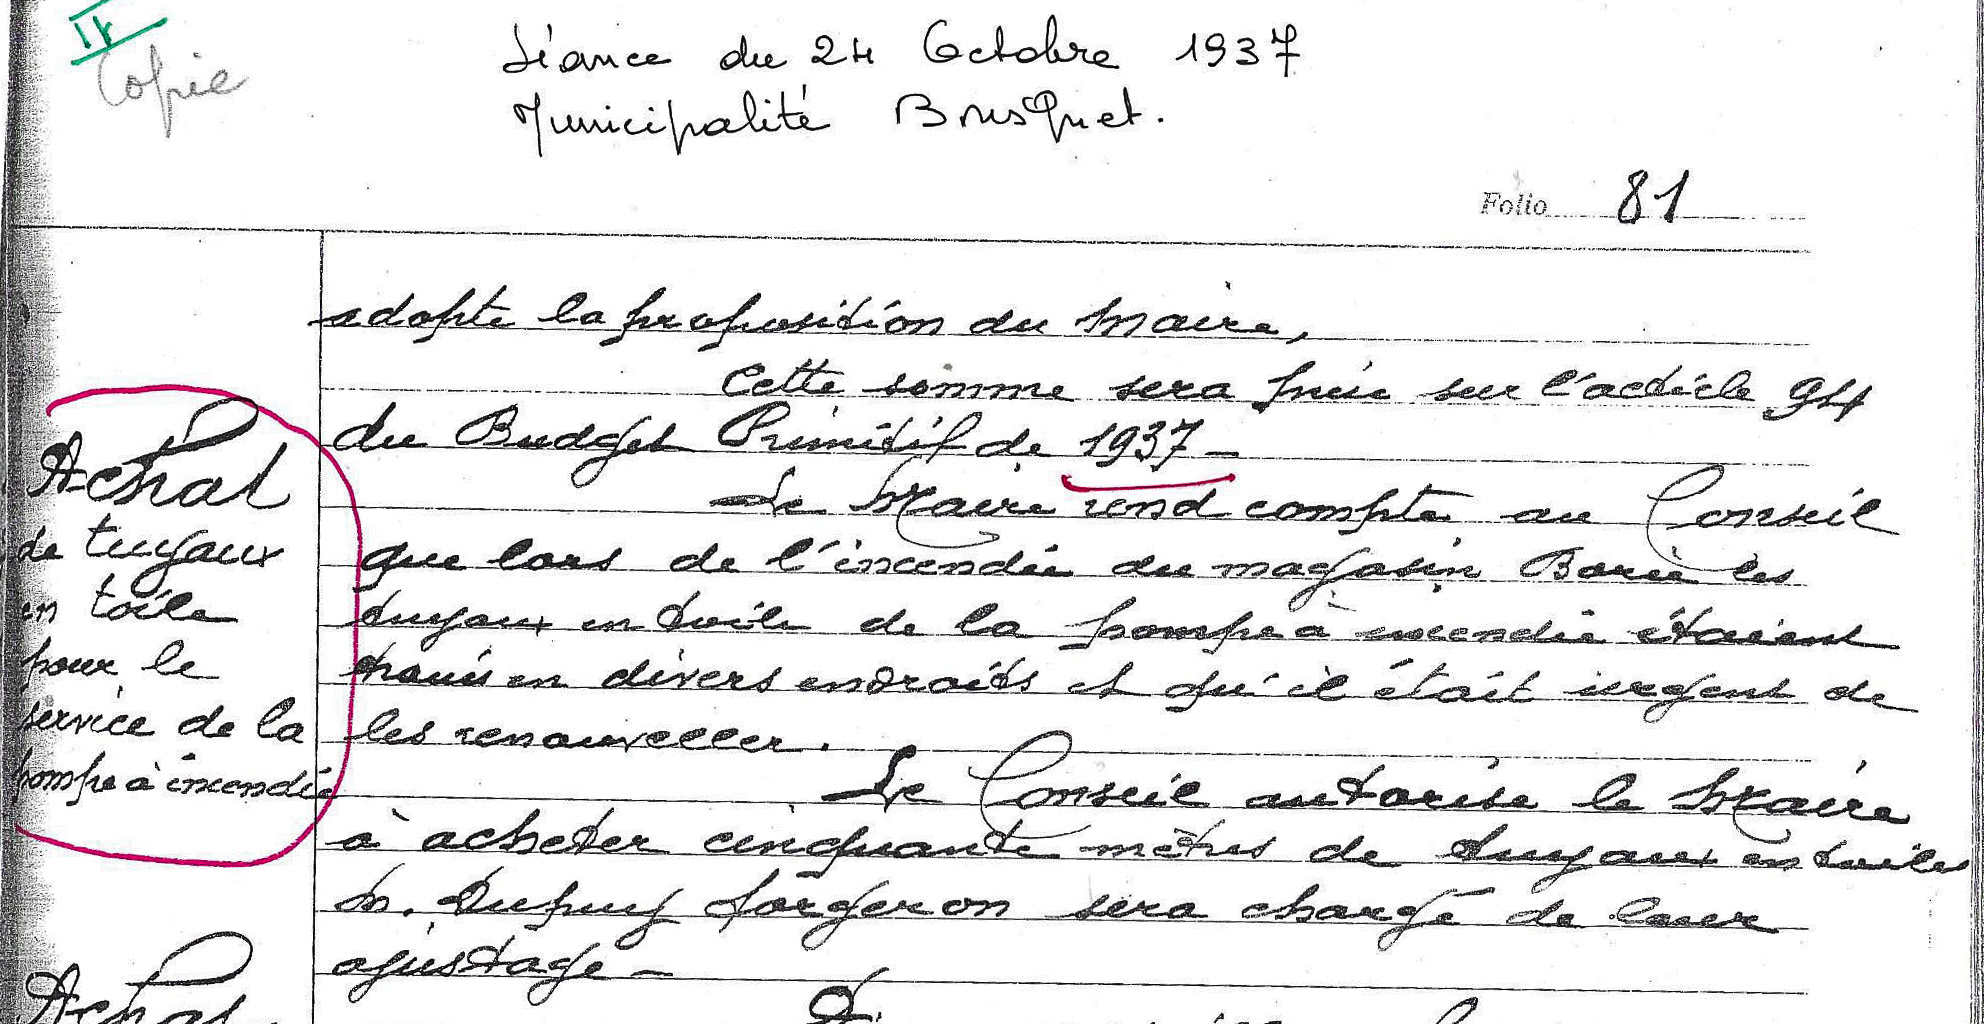 IV
Copie
Séance du 24 Octobre 1937
Municipalité Bousquet.
Folio 81
adopte la proposition du Maire,
Cette somme sera prise sur l'article 94
du Budget Primitif de 1937 -
Achat
de tuyaux
en toile
pour le
service de la
pompe à incendie
Le Maire rend compte au Conseil
que lors de l'incendie du magasin Borie les
tuyaux en toile de la pompe à incendie étaient
troués en divers endroits et qu'il était urgent de
les renouveller.
Le Conseil autorise le Maire
à acheter cinquante mètres de tuyaux en toiles
M. Dupuy forgeron sera chargé de leur
ajustage -
Achat